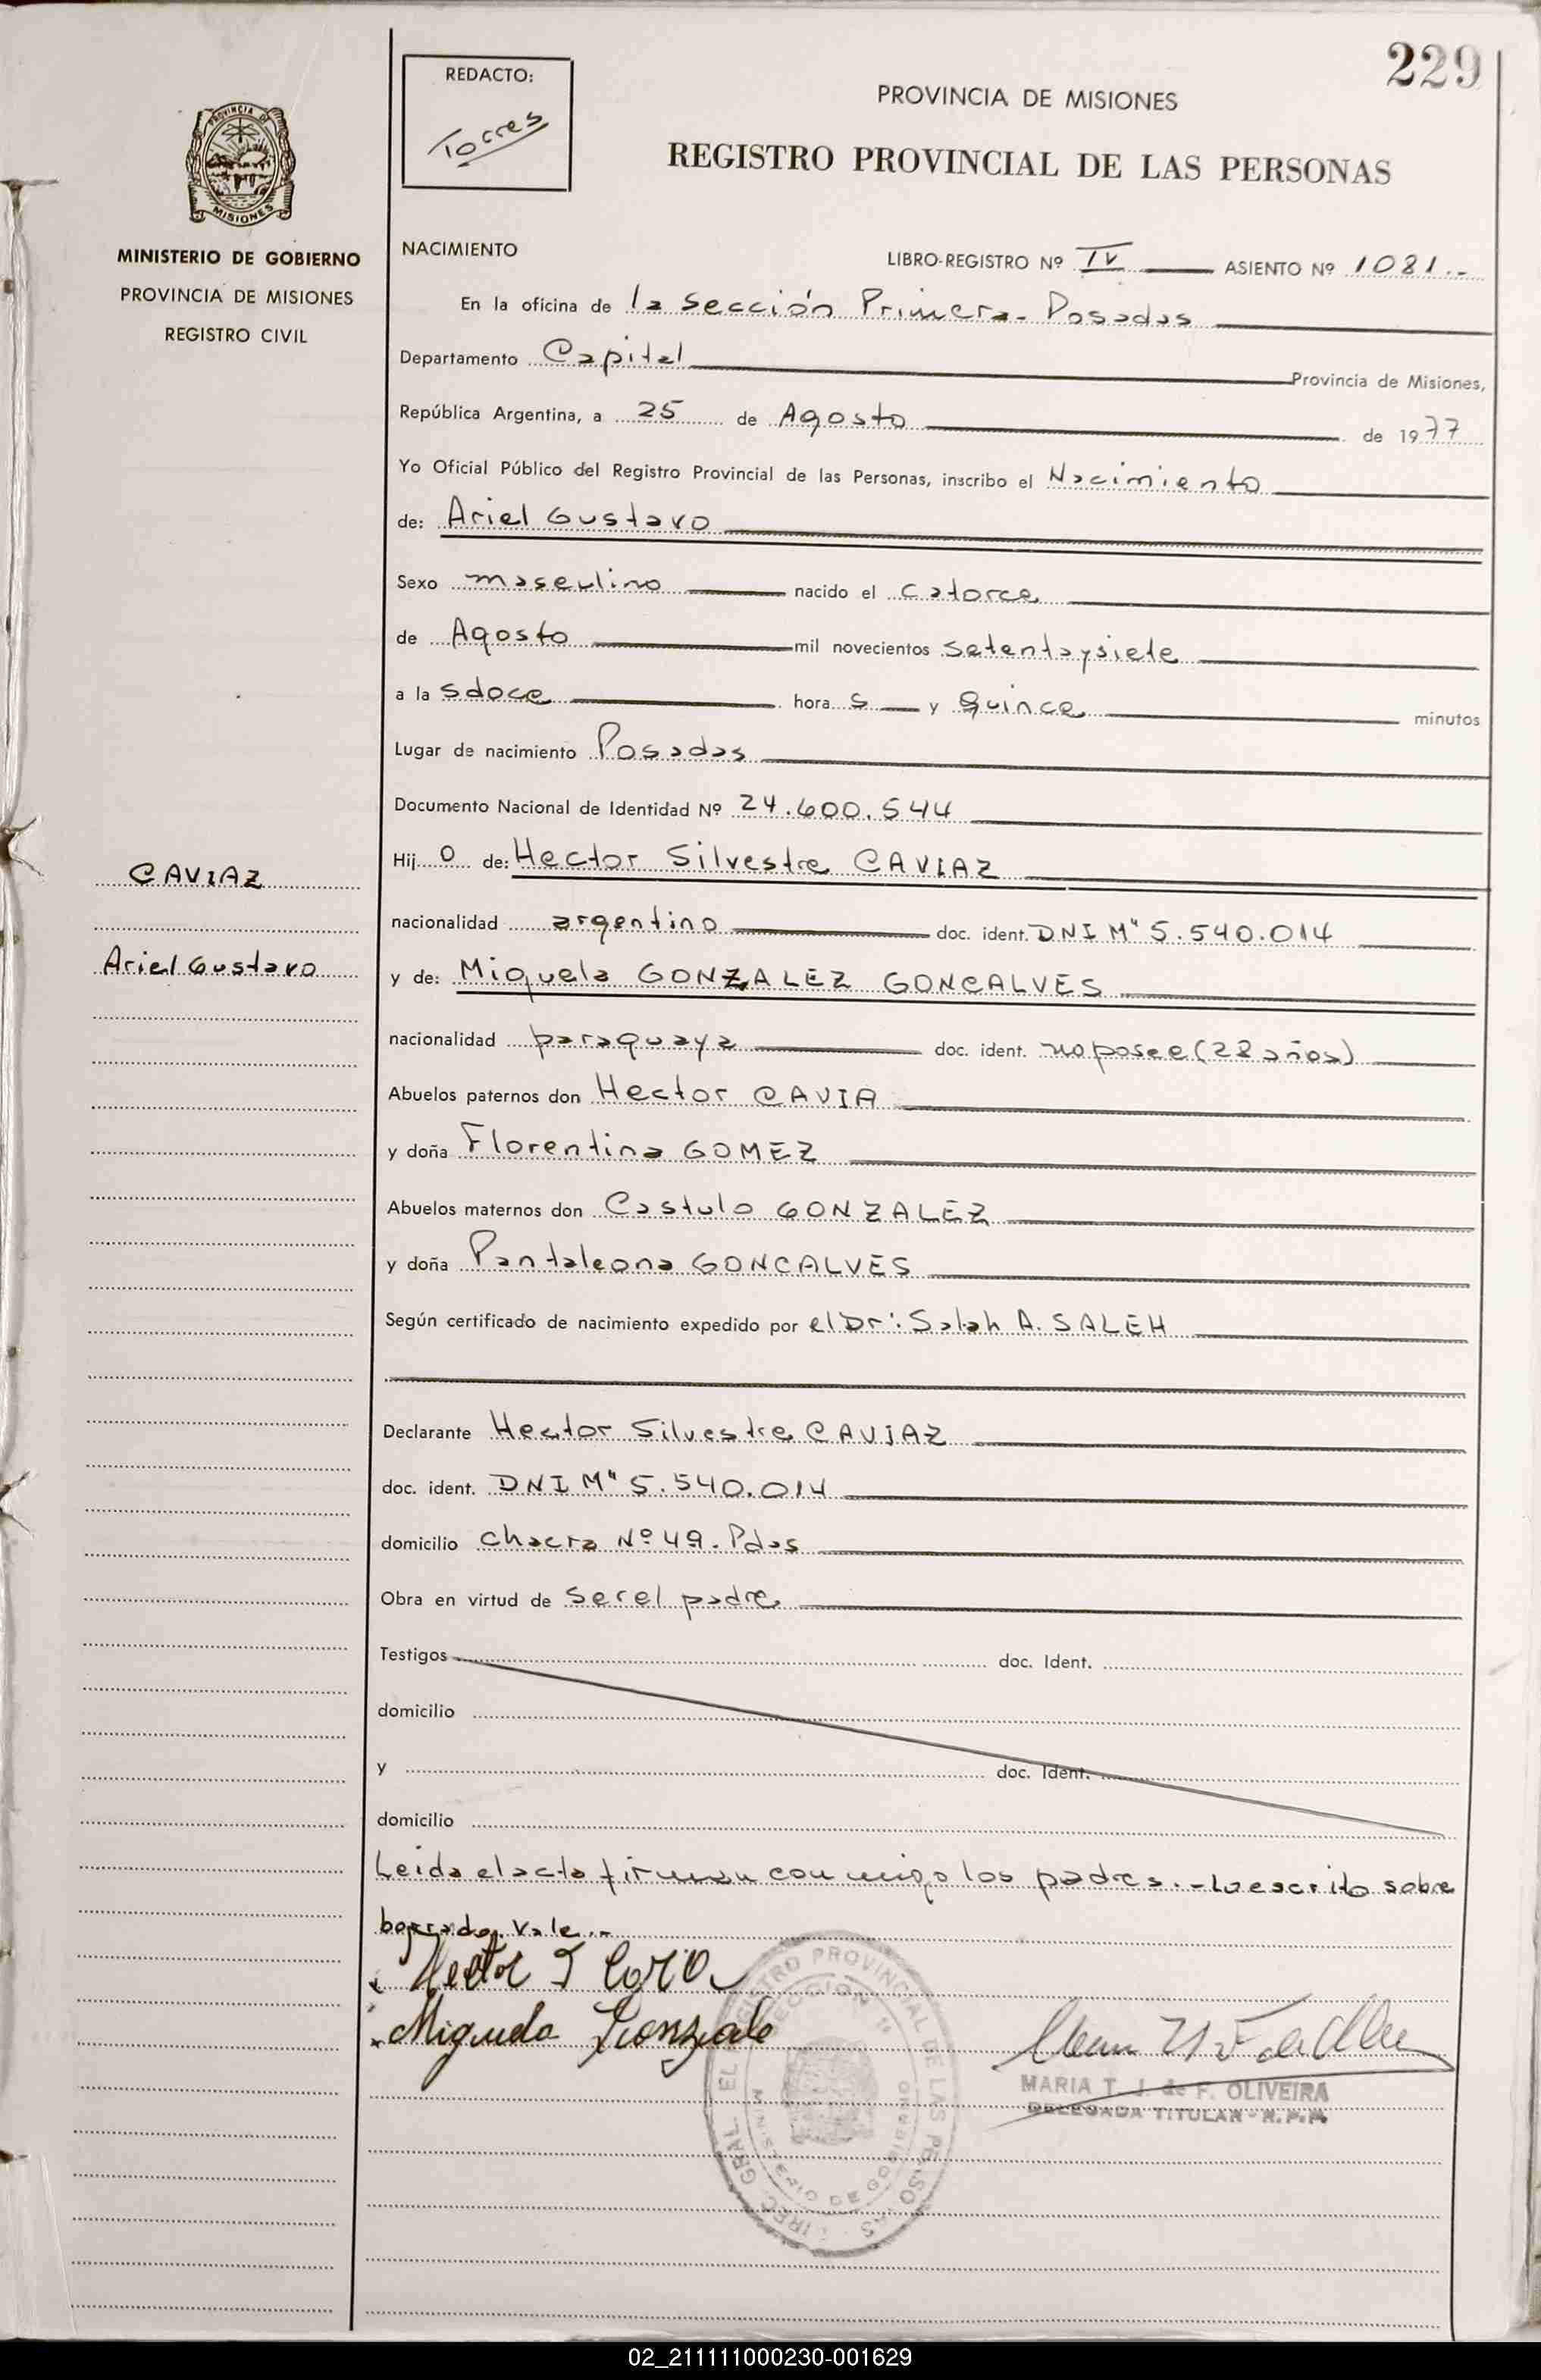 229
REDACTO:
Torres
PROVINCIA DE MISIONES
REGISTRO PROVINCIAL DE LAS PERSONAS
PROVINCIA DE
MISIONES
MINISTERIO DE GOBIERNO
PROVINCIA DE MISIONES
REGISTRO CIVIL
CAVIAZ
Ariel Gustavo
NACIMIENTO LIBRO-REGISTRO Nº IV ASIENTO Nº 1081.-
En la oficina de la sección Primera- Posadas
Departamento Capital Provincia de Misiones,
República Argentina, a 25 de Agosto de 1977
Yo Oficial Público del Registro Provincial de las Personas, inscribo el Nacimiento
de: Ariel Gustavo
Sexo masculino nacido el catorce
de Agosto mil novecientos setentaysiete
a la sdoce hora s y quince minutos
Lugar de nacimiento Posadas
Documento Nacional de Identidad Nº 24.600.544
Hij o de: Hector Silvestre CAVIAZ
nacionalidad argentino doc. ident. DNI M" 5.540.014
y de: Miguela GONZALEZ GONCALVES
nacionalidad paraguaya doc. ident. no posee (28 años)
Abuelos paternos don Hector CAVIA
y doña Florentina GOMEZ
Abuelos maternos don Castulo GONZALEZ
y doña Pantaleona GONCALVES
Según certificado de nacimiento expedido por el Dr: Salah A. SALEH
Declarante Hector Silvestre CAVIAZ
doc. ident. DNI M" 5.540.014
domicilio chacra Nº 49. Pdas
Obra en virtud de ser el padre
Testigos doc. Ident.
domicilio
y doc. Ident.
domicilio
Leida el acta firman con migo los padres.- Lo escrito sobre
borrado. Vale.-
Hector S
Miguela Gonzale
MARIA T. J. de F. OLIVEIRA
DELEGADA TITULAR - R.P.P.
DIREC. GRAL. EL REGISTRO PROVINCIAL DE LAS PERSONAS
SECCION 1ª
MINISTERIO DE GOBIERNO
02_211111000230-001629